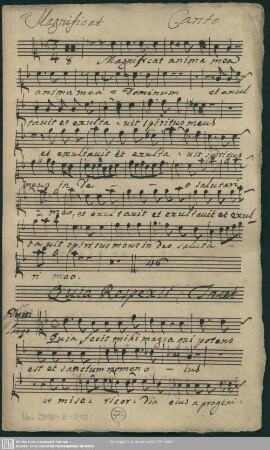 Magnificat Canto
8
Magnificat anima mea
anima mea Dominum et exul
tauit et exulta uit spiritus meus
et exultauit et exulta uit spiritus
meus in De o salutari
meo, et exultauit et exultauit et exul
tauit spiritus meus in deo saluta
46
ri meo.
Quia Respexit Tacet
Largo
Quia fecit mihi magna qui potens
est et sanctum nomen eius
et mise ricor dia eius a progeni